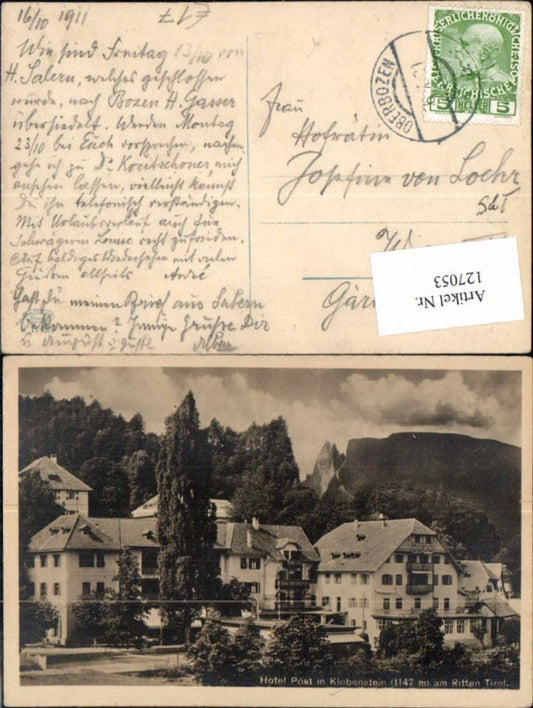 16/10 1911
Wir sind Freitag 13/10 von
H. Salern, welches geschlossen
wurde, nach Bozen H. Gasser
übersiedelt. Werden Montag
23/10 bei Euch vorsprechen, nachm.
gehe ich zu Dr.
ansehen lassen, vielleicht kannst
Du ihn telefonisch verständigen.
Mit Urlaubsverlauf auch für
Schwägerin Louise recht zufrieden.
Auf baldiges Wiedersehen mit vielen
Grüßen allseits André
Hast Du meinen Brief aus Salern
bekommen? Innige Grüsse Dir
KAISERLICHE KÖNIGLICHE
5 HELLER 5
OBERBOZEN
Frau
Hofrätin
Josefine von Loehr
Artikel Nr.
127053
Hotel Post in Klobenstein (1147 m) am Ritten Tirol.